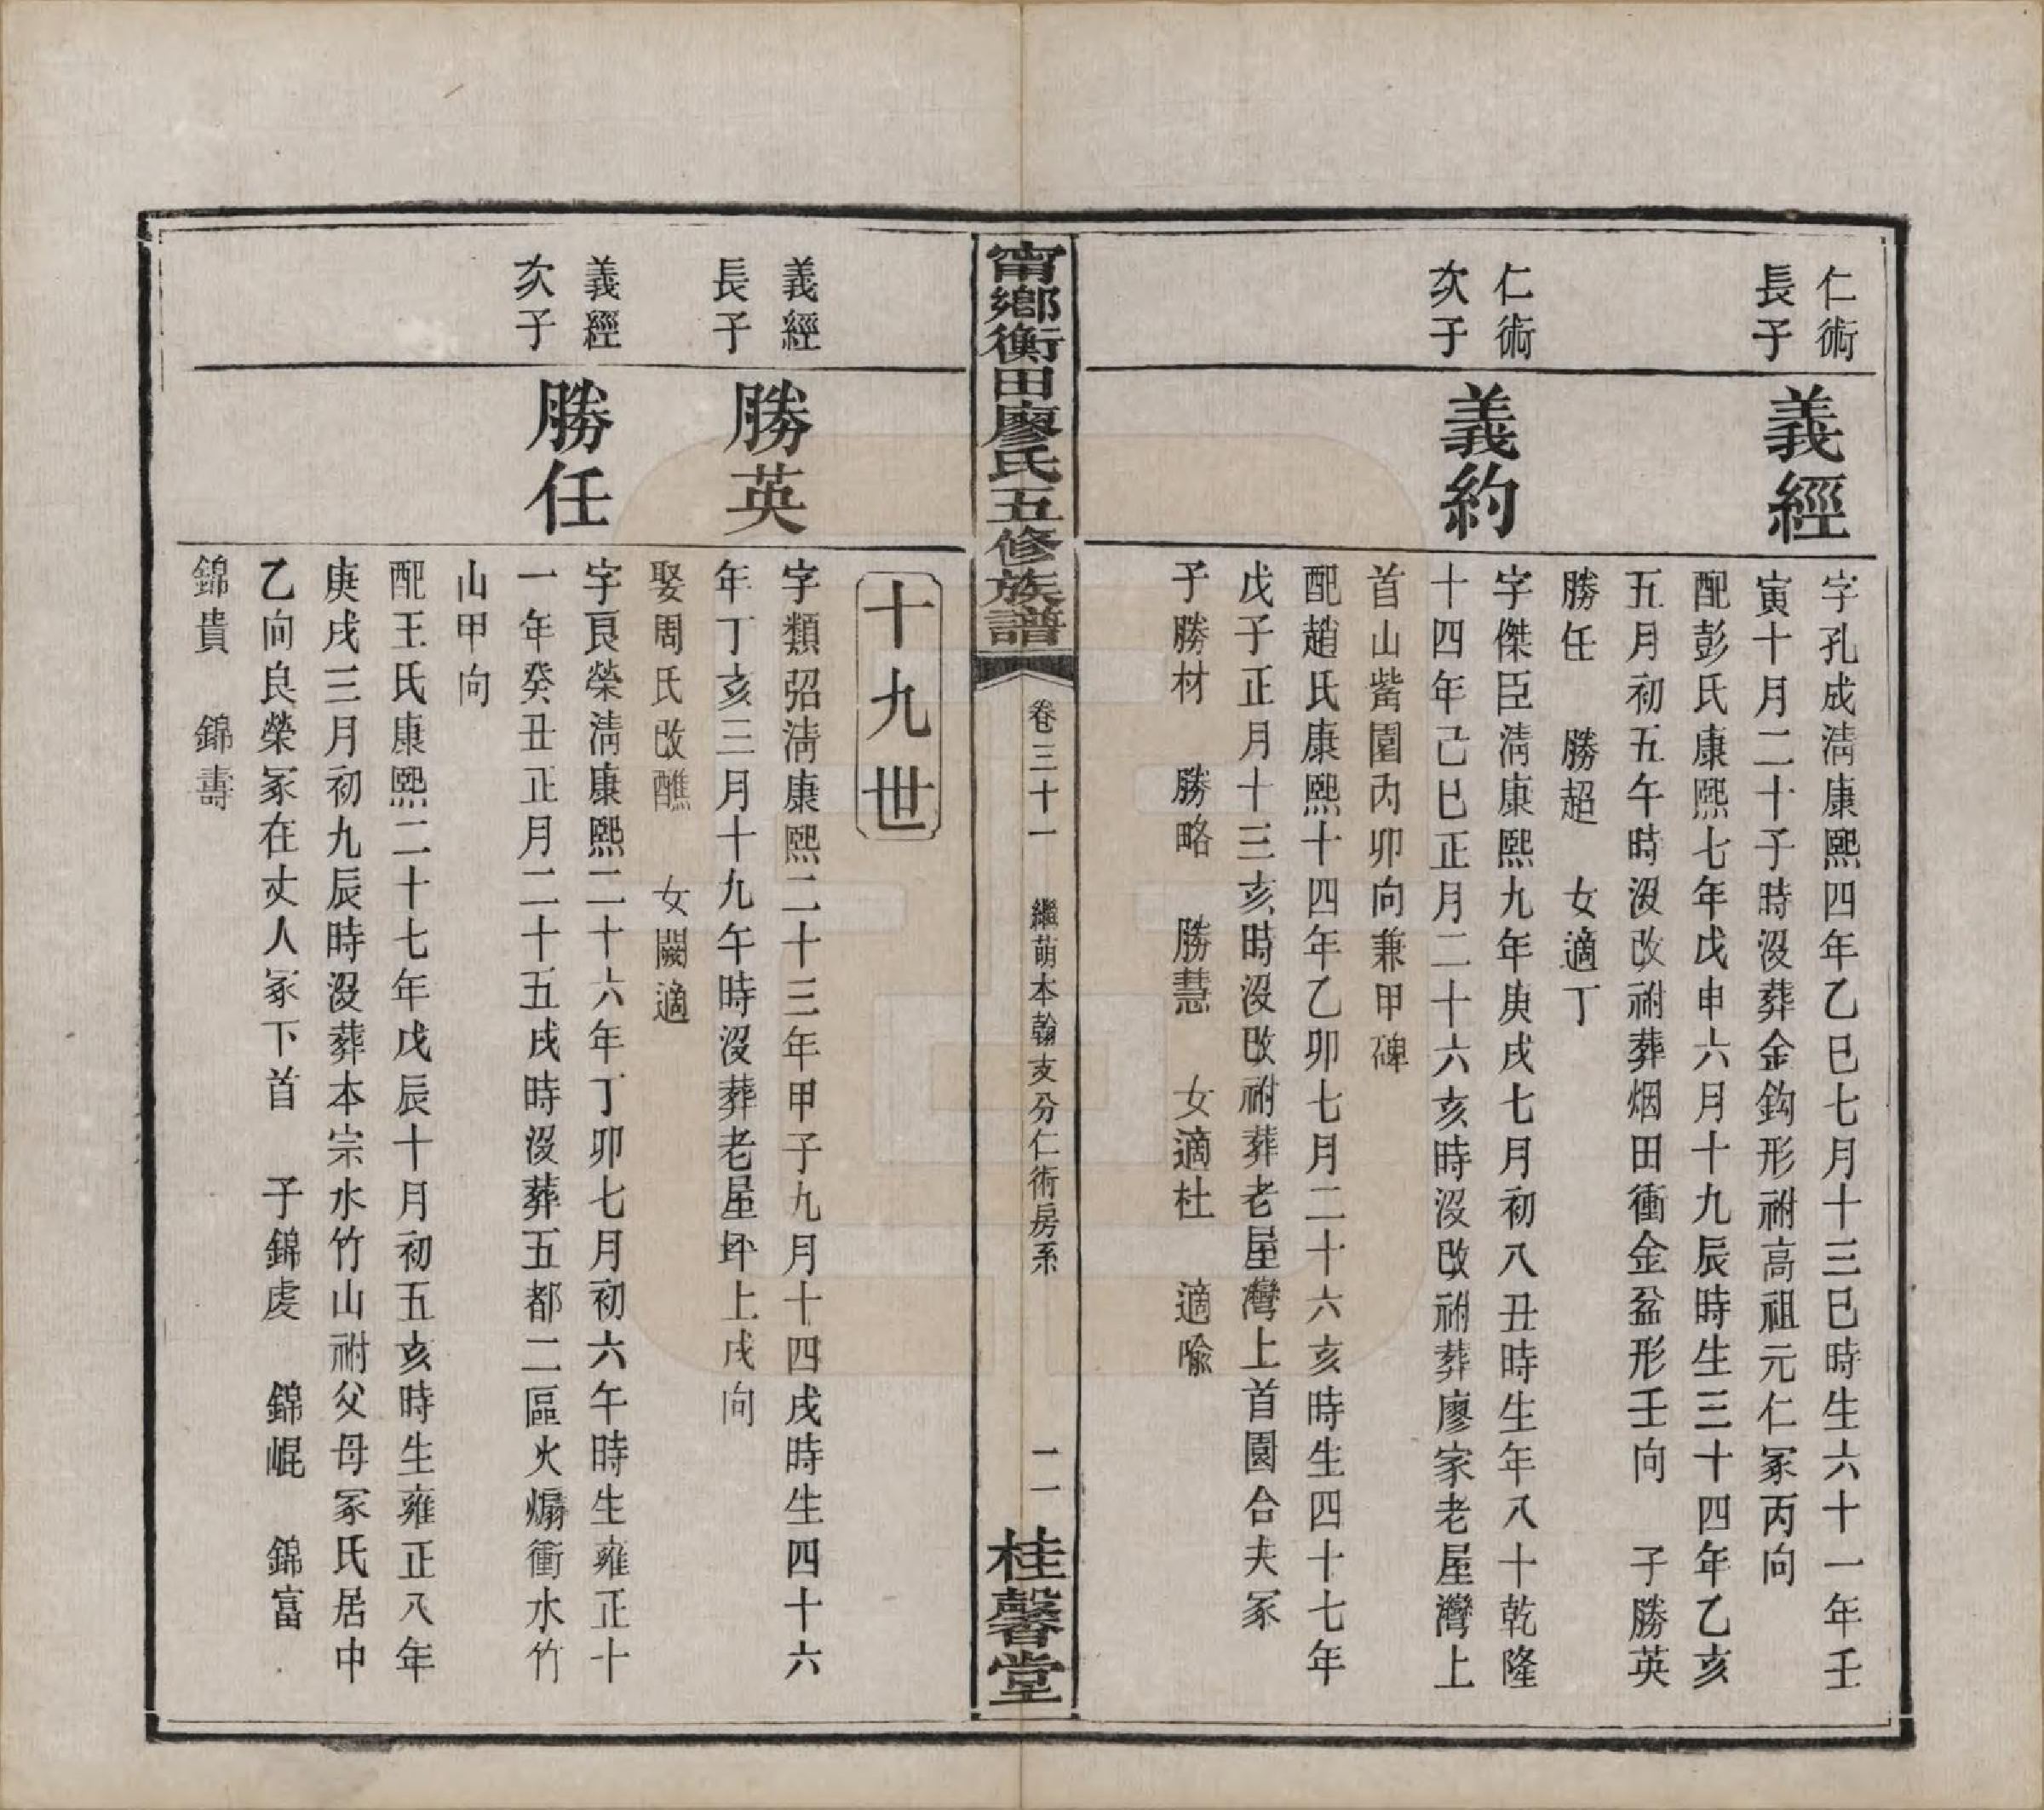 仁術
長子
義經
字孔成淸康熙四年乙巳七月十三巳時生六十一年壬
寅十月二十子時沒葬金鈎形祔高祖元仁冢丙向
配彭氏康熙七年戊申六月十九辰時生三十四年乙亥
五月初五午時沒改祔葬烟田衝金盆形壬向　子勝英
勝任　勝超　女適丁
仁術
次子
義約
字傑臣淸康熙九年庚戌七月初八丑時生年八十乾隆
十四年己巳正月二十六亥時沒改祔葬廖家老屋灣上
首山觜園內卯向兼甲碑
配趙氏康熙十四年乙卯七月二十六亥時生四十七年
戊子正月十三亥時沒改祔葬老屋灣上首園合夫冢
子勝材　勝略　勝慧　女適杜　適喩
甯鄉衡田廖氏五修族譜
卷三十一　繼萌本翰支分仁術房系
二一
桂馨堂
十九世
義經
長子
勝英
字類弨淸康熙二十三年甲子九月十四戌時生四十六
年丁亥三月十九午時沒葬老屋坪上戌向
娶周氏改醮　女闕適
義經
次子
勝任
字良榮淸康熙二十六年丁卯七月初六午時生雍正十
一年癸丑正月二十五戌時沒葬五都二區火煽衝水竹
山甲向
配王氏康熙二十七年戊辰十月初五亥時生雍正八年
庚戌三月初九辰時沒葬本宗水竹山祔父母冢氏居中
乙向良榮冢在丈人冢下首　子錦虔　錦崐　錦富
錦貴　錦壽